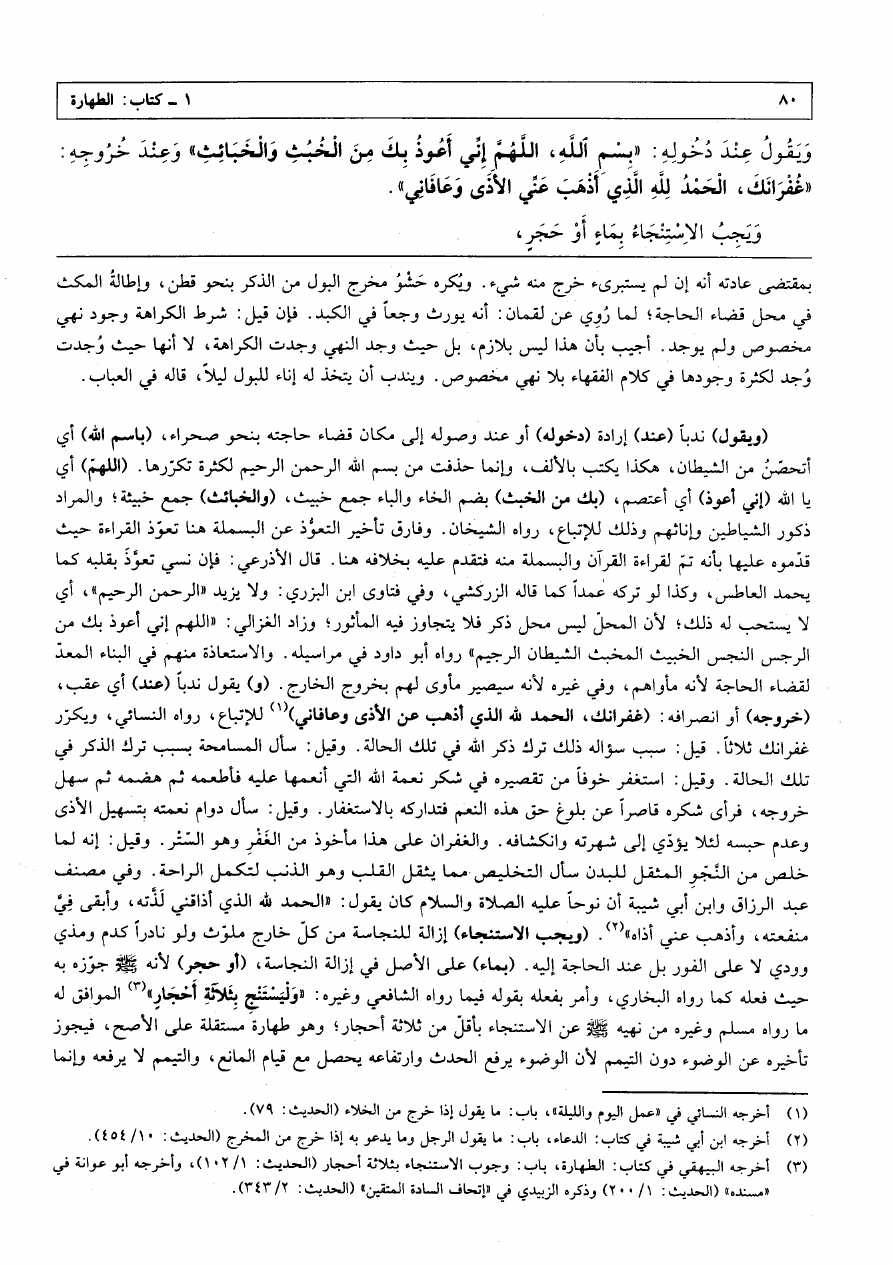 ٨٠
١ ـ كتاب: الطهارة
وَيَقُولُ عِنْدَ دُخُولِهِ: «بِسْمِ ٱللَّهِ، اللَّهُمَّ إِنِّي أَعُوذُ بِكَ مِنَ الْخُبُثِ وَالْخَبَائِثِ» وَعِنْدَ خُرُوجِهِ:
«غُفْرَانَكَ، الْحَمْدُ لِلَّهِ الَّذِي أَذْهَبَ عَنِّي الأَذَى وَعَافَانِي».
وَيَجِبُ الاِسْتِنْجَاءُ بِمَاءٍ أَوْ حَجَرٍ،
بمقتضى عادته أنه إن لم يستبرىء خرج منه شيء. ويُكره حَشْوُ مخرج البول من الذكر بنحو قطن، وإطالةُ المكث
في محل قضاء الحاجة؛ لما رُوِي عن لقمان: أنه يورث وجعاً في الكبد. فإن قيل: شرط الكراهة وجود نهي
مخصوص ولم يوجد. أجيب بأن هذا ليس بلازم، بل حيث وجد النهي وجدت الكراهة، لا أنها حيث وُجدت
وُجد لكثرة وجودها في كلام الفقهاء بلا نهي مخصوص. ويندب أن يتخذ له إناء للبول ليلاً، قاله في العباب.
(ويقول) ندباً (عند) إرادة (دخوله) أو عند وصوله إلى مكان قضاء حاجته بنحو صحراء، (باسم الله) أي
أتحصّنُ من الشيطان، هكذا يكتب بالألف، وإنما حذفت من بسم الله الرحمن الرحيم لكثرة تكرّرها. (اللهمّ) أي
يا الله (إني أعوذ) أي أعتصم، (بك من الخبث) بضم الخاء والباء جمع خبيث، (والخبائث) جمع خبيثة؛ والمراد
ذكور الشياطين وإناثهم وذلك للإتباع، رواه الشيخان. وفارق تأخير التعوُّذ عن البسملة هنا تعوّذ القراءة حيث
قدّموه عليها بأنه ثمّ لقراءة القرآن والبسملة منه فتقدم عليه بخلافه هنا. قال الأذرعي: فإن نسي تعوَّذَ بقلبه كما
يحمد العاطس، وكذا لو تركه عمداً كما قاله الزركشي، وفي فتاوى ابن البزري: ولا يزيد «الرحمن الرحيم»، أي
لا يستحب له ذلك؛ لأن المحلّ ليس محل ذكر فلا يتجاوز فيه المأثور؛ وزاد الغزالي: «اللهم إني أعوذ بك من
الرجس النجس الخبيث المخبث الشيطان الرجيم» رواه أبو داود في مراسيله. والاستعاذة منهم في البناء المعدّ
لقضاء الحاجة لأنه مأواهم، وفي غيره لأنه سيصير مأوى لهم بخروج الخارج. (و) يقول ندباً (عند) أي عقب،
(خروجه) أو انصرافه: (غفرانك، الحمد لله الذي أذهب عن الأذى وعافاني)(١) للإتباع، رواه النسائي، ويكرّر
غفرانك ثلاثاً. قيل: سبب سؤاله ذلك ترك ذكر الله في تلك الحالة. وقيل: سأل المسامحة بسبب ترك الذكر في
تلك الحالة. وقيل: استغفر خوفاً من تقصيره في شكر نعمة الله التي أنعمها عليه فأطعمه ثم هضمه ثم سهل
خروجه، فرأى شكره قاصراً عن بلوغ حق هذه النعم فتداركه بالاستغفار. وقيل: سأل دوام نعمته بتسهيل الأذى
وعدم حبسه لئلا يؤدّي إلى شهرته وانكشافه. والغفران على هذا مأخوذ من الغَفْرِ وهو السَّتْر. وقيل: إنه لما
خلص من النَّجْوِ المثقل للبدن سأل التخليص مما يثقل القلب وهو الذنب لتكمل الراحة. وفي مصنف
عبد الرزاق وابن أبي شيبة أن نوحاً عليه الصلاة والسلام كان يقول: «الحمد لله الذي أذاقني لَذَّته، وأبقى فِيَّ
منفعته، وأذهب عني أذاه»(٢). (ويجب الاستنجاء) إزالة للنجاسة من كلّ خارج ملوّث ولو نادراً كدم ومذي
وودي لا على الفور بل عند الحاجة إليه. (بماء) على الأصل في إزالة النجاسة، (أو حجر) لأنه ﷺ جوّزه به
حيث فعله كما رواه البخاري، وأمر بفعله بقوله فيما رواه الشافعي وغيره: «وَلْيَسْتَنْجِ بِثَلَاثَةِ أَحْجَارٍ»(٣) الموافق له
ما رواه مسلم وغيره من نهيه ﷺ عن الاستنجاء بأقلّ من ثلاثة أحجار؛ وهو طهارة مستقلة على الأصح، فيجوز
تأخيره عن الوضوء دون التيمم لأن الوضوء يرفع الحدث وارتفاعه يحصل مع قيام المانع، والتيمم لا يرفعه وإنما
(١) أخرجه النسائي في «عمل اليوم والليلة»، باب: ما يقول إذا خرج من الخلاء (الحديث: ٧٩).
(٢) أخرجه ابن أبي شيبة في كتاب: الدعاء، باب: ما يقول الرجل وما يدعو به إذا خرج من المخرج (الحديث: ٤٥٤/١٠).
(٣) أخرجه البيهقي في كتاب: الطهارة، باب: وجوب الاستنجاء بثلاثة أحجار (الحديث: ١٠٢/١)، وأخرجه أبو عوانة في
«مسنده» (الحديث: ٢٠٠/١) وذكره الزبيدي في «إتحاف السادة المتقين» (الحديث: ٣٤٣/٢).